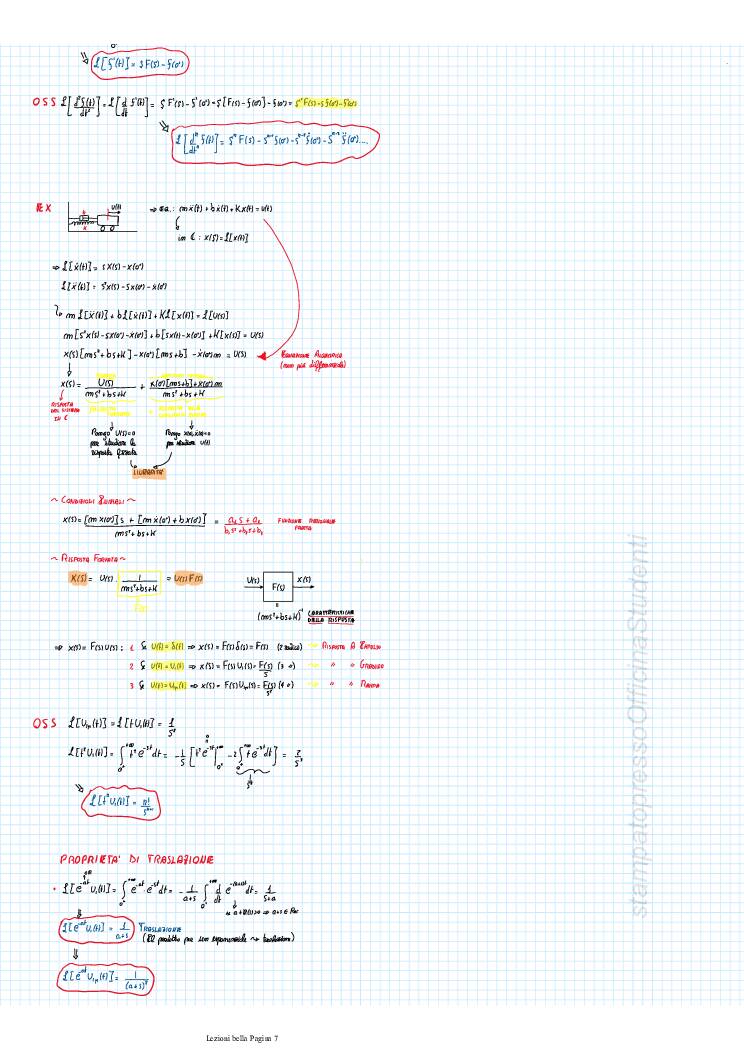 0⁻
⇒ ℒ[ḟ(t)] = s F(s) - f(0⁻)
OSS ℒ[d²f(t)/dt²] = ℒ[d/dt f'(t)] = s F'(s) - f'(0⁻) = s[F(s) - f(0⁻)] - f(0⁻) = s²F(s) - s f(0⁻) - f(0⁻)
⇒ ℒ[dⁿ/dtⁿ f(t)] = sⁿ F(s) - sⁿ⁻¹ f(0⁻) - sⁿ⁻² ḟ(0⁻) - sⁿ⁻³ f̈(0⁻)....
EX b k x U(t) ⇒ EQ.: m ẍ(t) + b ẋ(t) + K x(t) = u(t)
in ℂ : X(s) = ℒ[x(t)]
⇒ ℒ[ẋ(t)] = s X(s) - x(0⁻)
ℒ[ẍ(t)] = s²X(s) - s x(0⁻) - ẋ(0⁻)
m ℒ[ẍ(t)] + b ℒ[ẋ(t)] + K ℒ[x(t)] = ℒ[U(s)]
m[s²X(s) - s x(0⁻) - ẋ(0⁻)] + b[s x(t) - x(0⁻)] + K[x(s)] = U(s)
X(s)[ms² + bs + K] - x(0⁻)[ms + b] - ẋ(0⁻)m = U(s)
EQUAZIONE ALGEBRICA
(non più differenziale)
X(s) = U(s)/(ms² + bs + K) + (x(0⁻)[ms + b] + ẋ(0⁻)m)/(ms² + bs + K)
RISPOSTA
DEL SISTEMA
IN ℂ
Pongo U(s)=0
per studiare la
risposta forzata
Pongo x(0), ẋ(0)=0
per studiare U(t)
LINEARITÀ
~ CONDIZIONI INIZIALI ~
X(s) = ([m x(0⁻)]s + [m ẋ(0⁻) + b x(0⁻)])/(ms² + bs + K) = FUNZIONE RAZIONALE
FRATTA
~ RISPOSTA FORZATA ~
X(s) = U(s) · 1/(ms² + bs + K) = U(s) F(s)
F(s)
U(s) F(s) X(s)
(ms² + bs + K)⁻¹ CARATTERISTICHE
DELLA RISPOSTA
⇒ X(s) = F(s) U(s) : 1 Se U(t) = δ(t) ⇒ X(s) = F(s) δ(s) = F(s) (2 radici) ~ RISPOSTA A IMPULSO
2 Se U(t) = U₁(t) ⇒ X(s) = F(s) U₁(s) = F(s)/s (3 ") ~ " " GRADINO
3 Se U(t) = Uᵣₚ(t) ⇒ X(s) = F(s) Uᵣₚ(s) = F(s)/s² (4 ") ~ " " RAMPA
OSS ℒ[Uᵣₚ(t)] = ℒ[t U₁(t)] = 1/s²
ℒ[t² U₁(t)] = ∫₀⁻^+∞ t² e^-st dt = -1/s [t² e^-st |₀⁻^+∞ - 2∫₀⁻^+∞ t e^-st dt] = 2/s³
⇒ ℒ[tⁿ U₁(t)] = n!/sⁿ⁺¹
PROPRIETA' DI TRASLAZIONE
• ℒ[e^-at U₁(t)] = ∫₀⁻^+∞ e^-at · e^-st dt = -1/(a+s) ∫₀⁻^+∞ d/dt e^-(a+s)t dt = 1/(s+a)
ℒ[e^-at U₁(t)] = 1/(a+s) TRASLAZIONE
(Il prodotto per un esponenziale ~ traslazione)
ℒ[e^-at Uᵣₚ(t)] = 1/(a+s)²
stampatopressoOfficinaStudenti
Lezioni bella Pagina 7